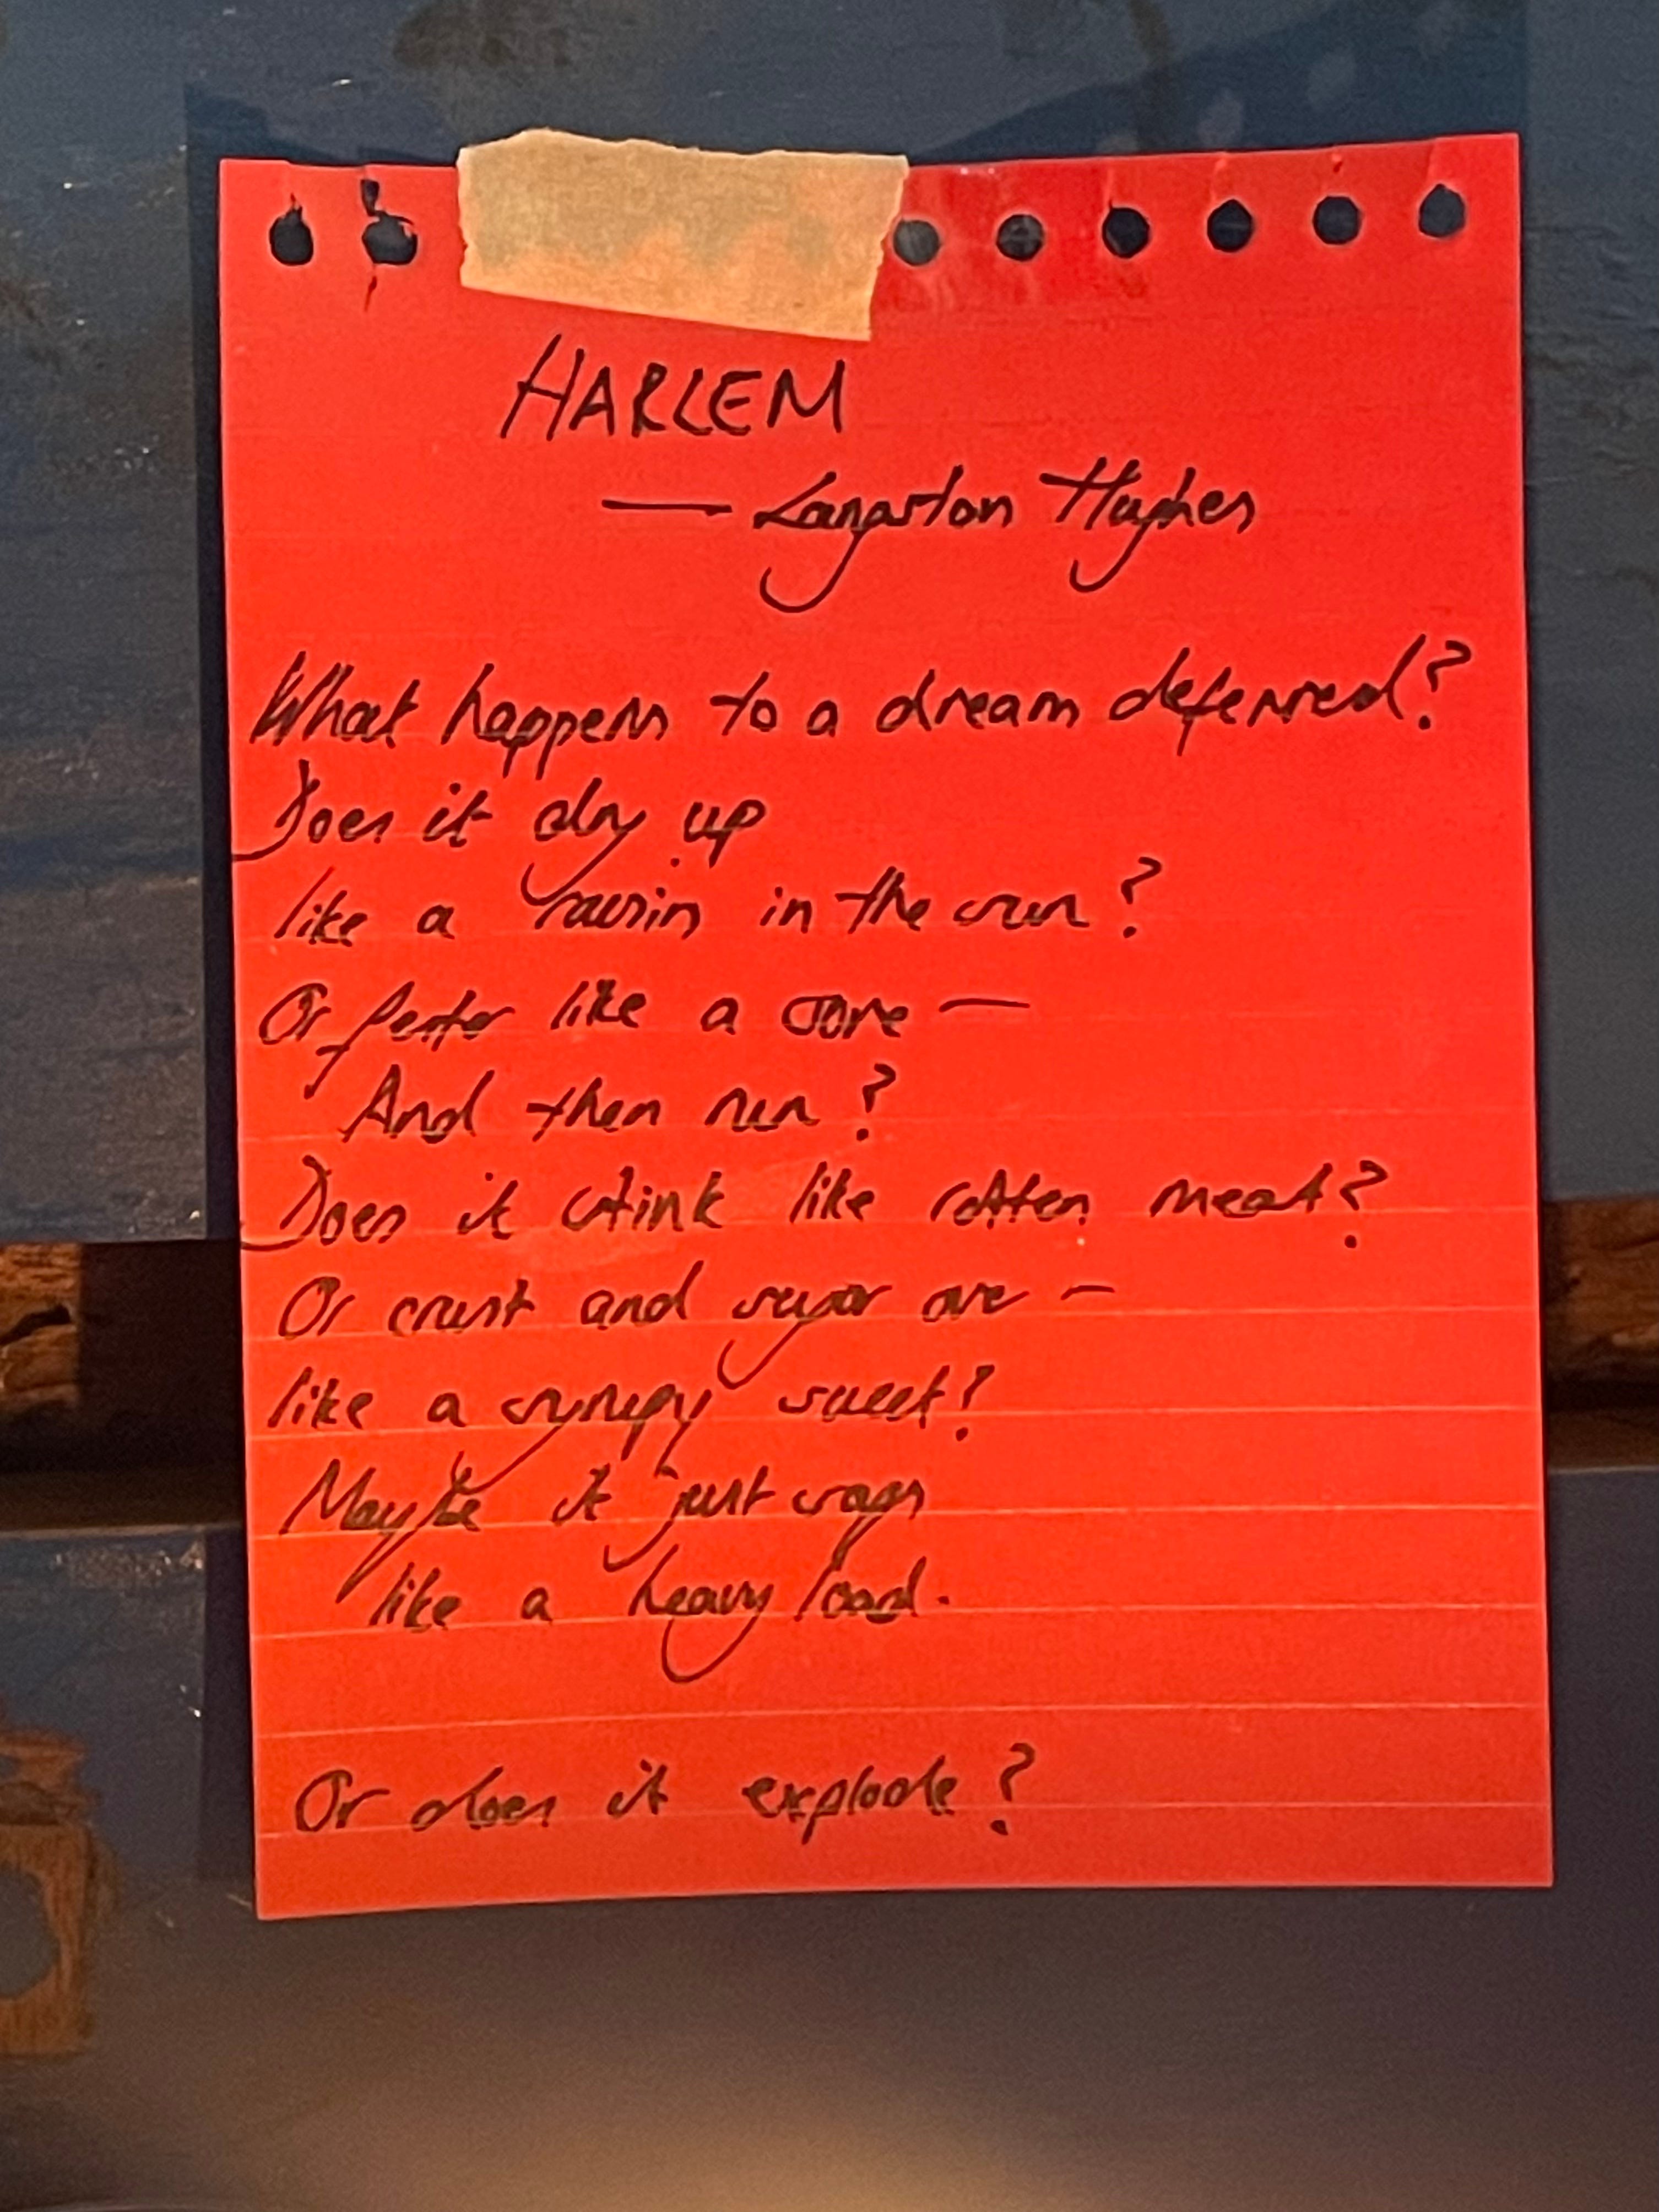 HARLEM
— Langston Hughes
What happens to a dream deferred?
Does it dry up
like a raisin in the sun?
Or fester like a sore —
And then run?
Does it stink like rotten meat?
Or crust and sugar over —
like a syrupy sweet?
Maybe it just sags
like a heavy load.
Or does it explode?